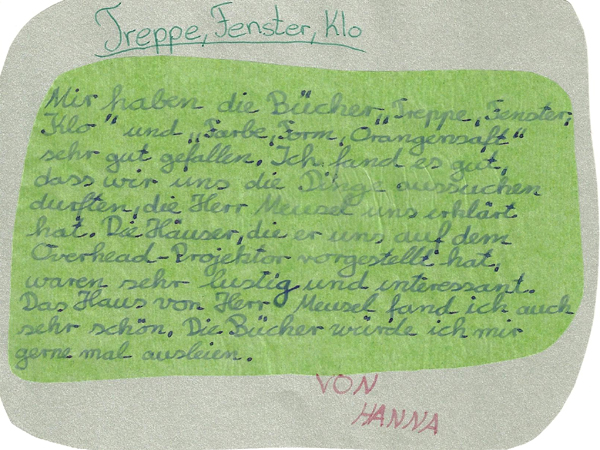 Treppe, Fenster, Klo
Mir haben die Bücher „Treppe, Fenster,
Klo" und „Farbe, Form, Orangensaft"
sehr gut gefallen. Ich fand es gut,
dass wir uns die Dinge aussuchen
durften, die Herr Meusel uns erklärt
hat. Die Häuser, die er uns auf dem
Overhead-Projektor vorgestellt hat,
waren sehr lustig und interessant.
Das Haus von Herr Meusel fand ich auch
sehr schön. Die Bücher würde ich mir
gerne mal ausleien.
VON
HANNA